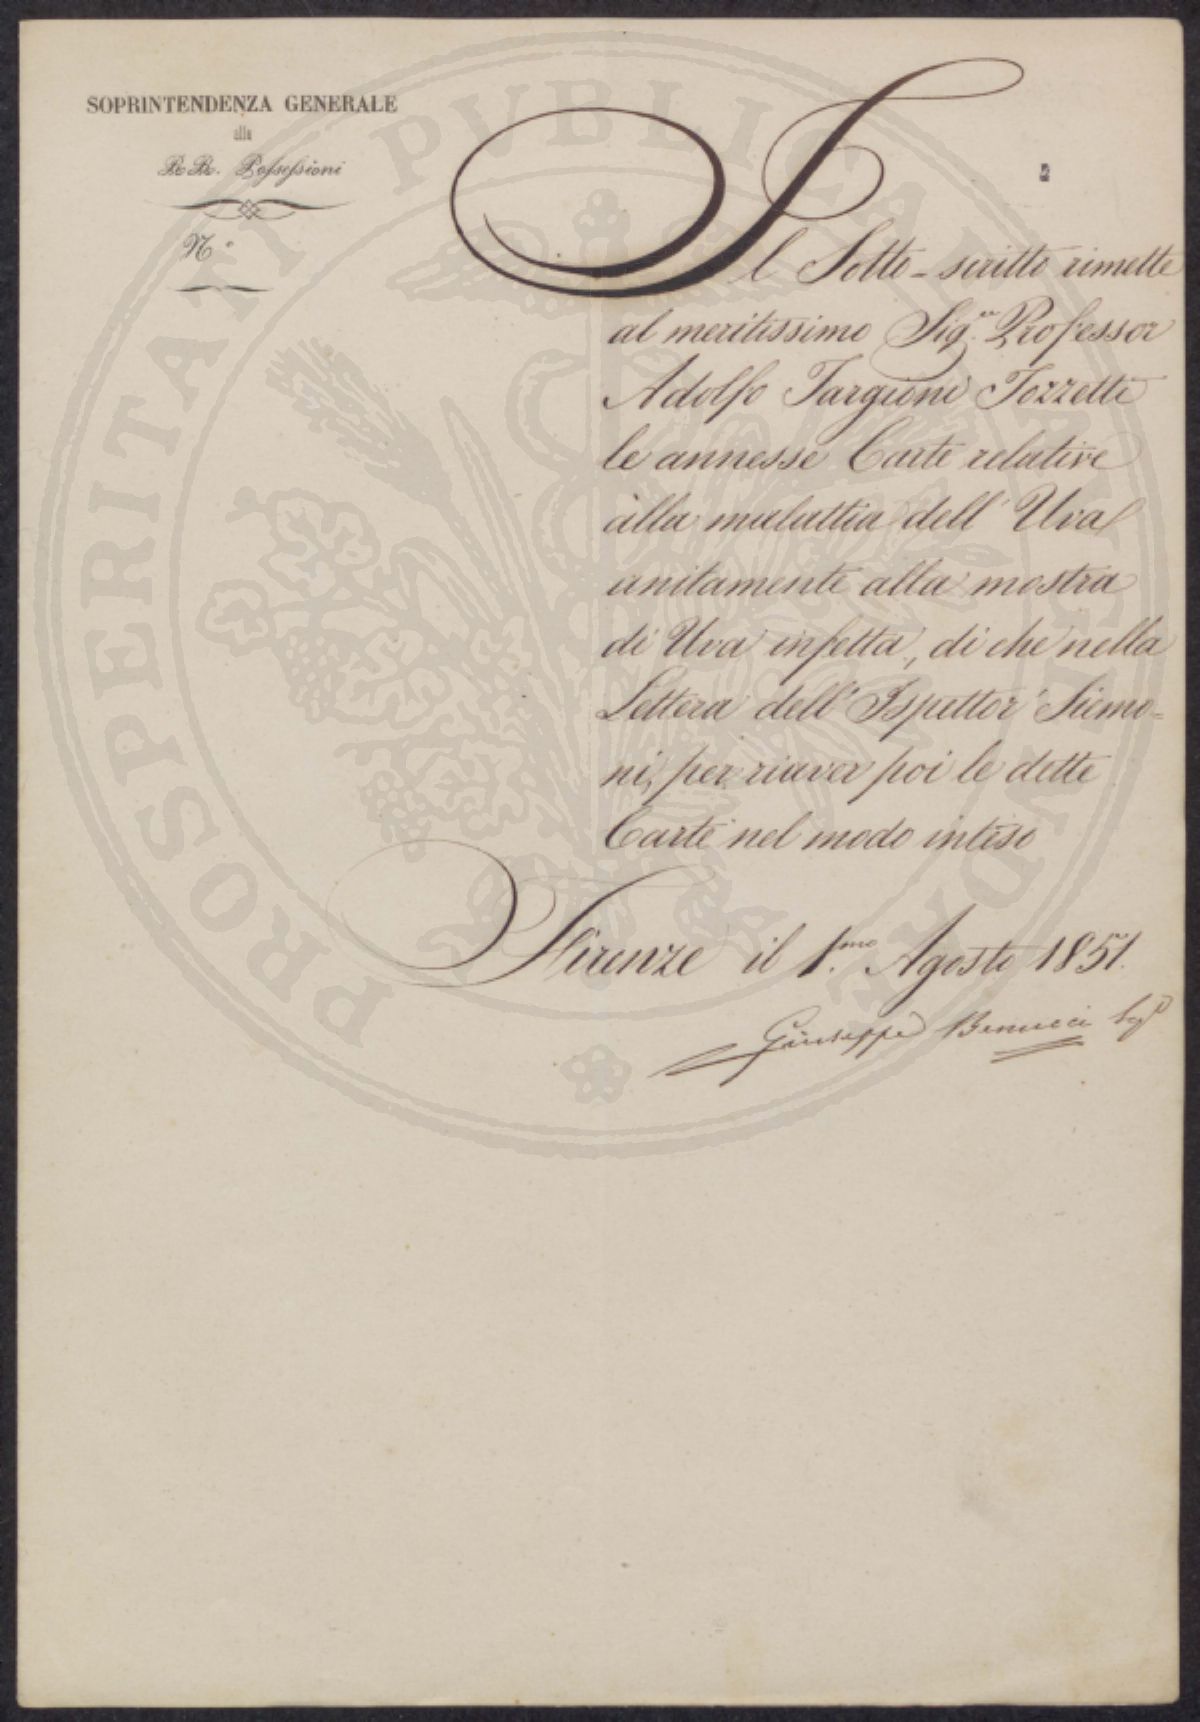 SOPRINTENDENZA GENERALE
alle
RR. Possessioni
N.°
2
Il Sotto-scritto rimette
al meritissimo Sig.re Professor
Adolfo Targioni Tozzetti
le annesse Carte relative
alla malattia dell' Uva
unitamente alla mostra
di Uva infetta, di che nella
Lettera dell' Ispettor Siemo=
ni, per riaver poi le dette
Carte nel modo inteso
Firenze il 1.mo Agosto 1851.
Giuseppe Benucci
PROSPERITATI PVBLICAE AVGENDAE